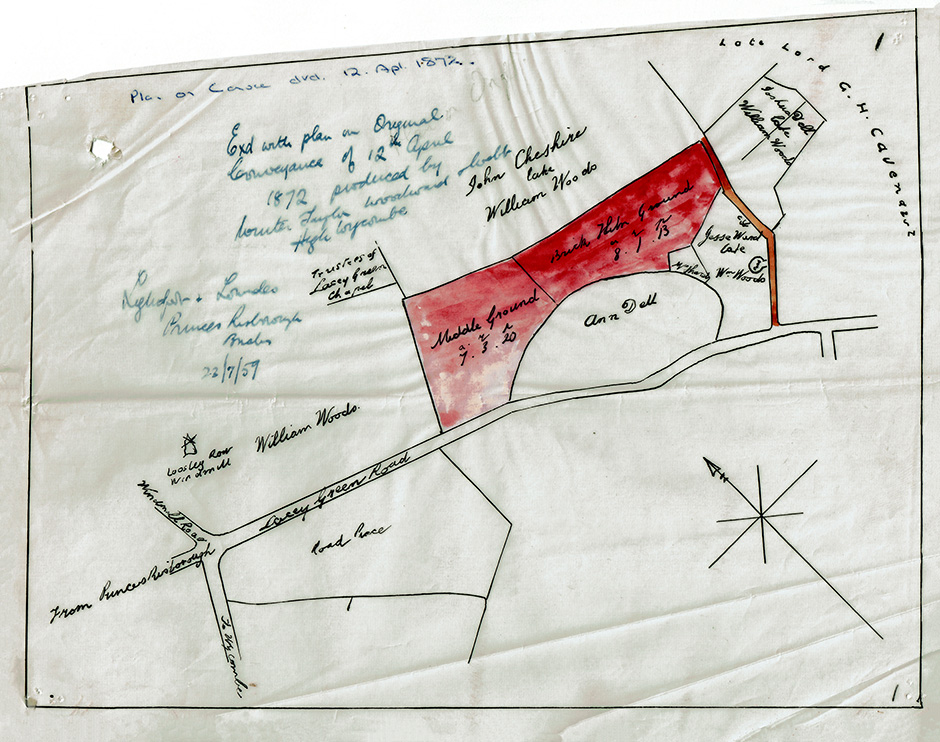 Plan on Convce dvd. 12. Apl. 1872.
Exd with plan on Original
Conveyance of 12th April
1872 produced by
High Wycombe
Lightfoot & Lowndes
Princes Risborough
Bucks
23/7/59
John Cheshire
late
William Woods
Late Lord G. H. Cavendish
Joshua Dell
late
William Woods
Brick Kiln Ground
a r p
8. 1. 13
Jesse West
late
Wm Woods
Trustees of
Lacey Green
Chapel
Middle Ground
a. r. p
7. 3. 20
Ann Dell
William Woods.
Loosley Row
Windmill
Windmill Road
Lacey Green Road
Road Piece
From Princes Risborough
To Wycombe
N
1
1